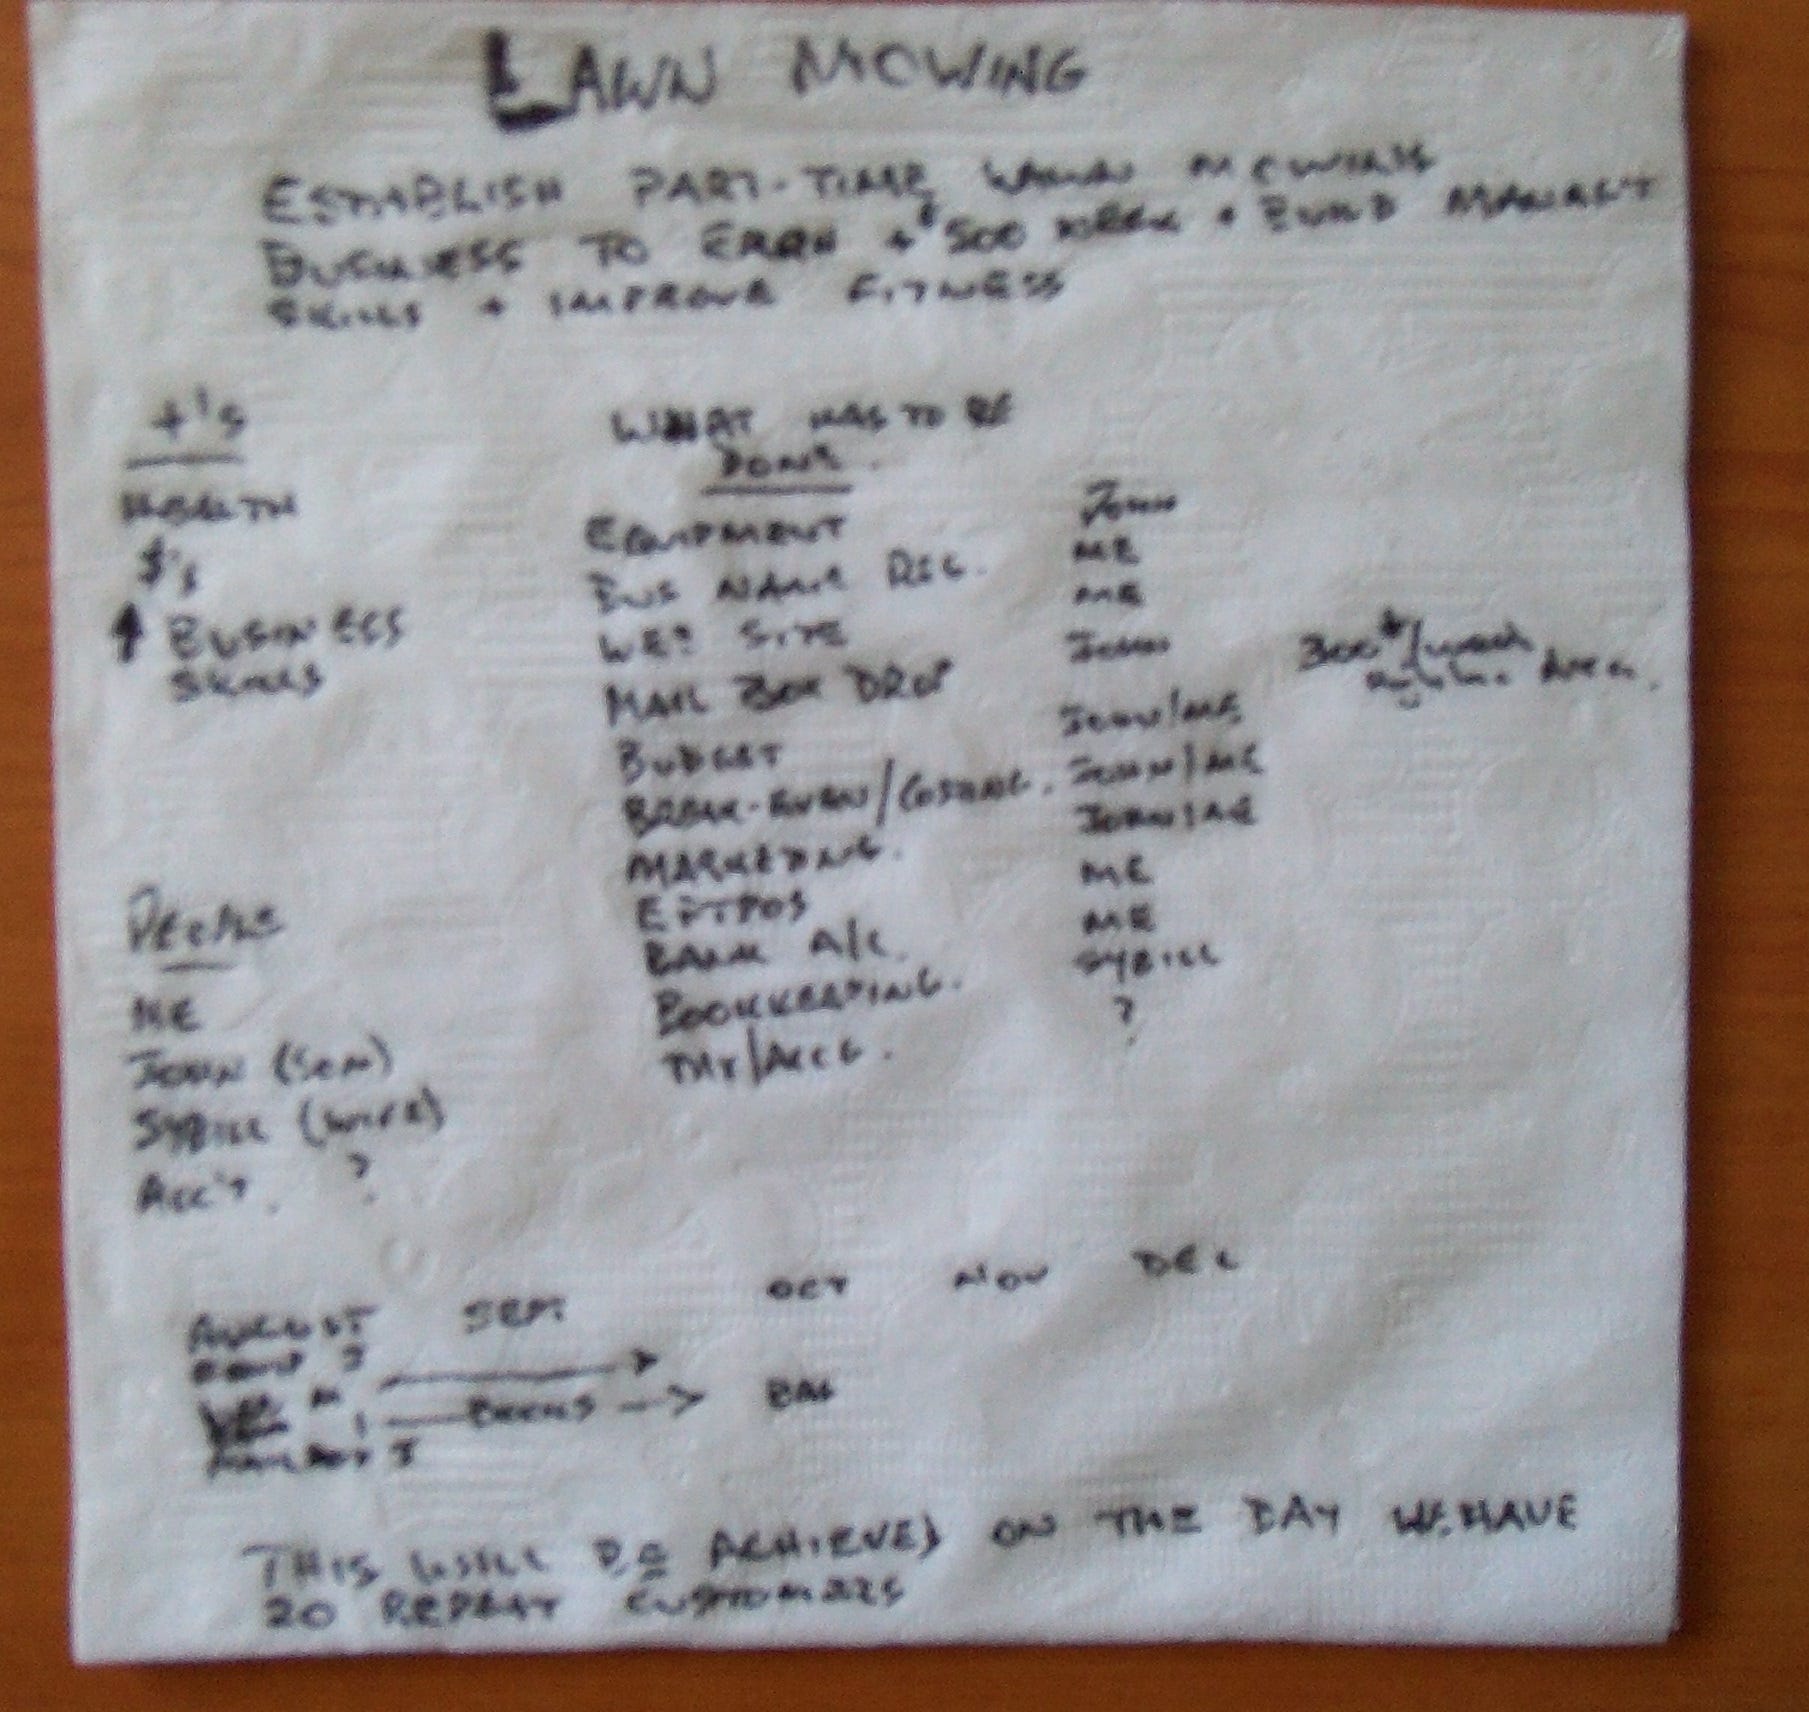 LAWN MOWING
ESTABLISH PART-TIME LAWN MOWING
BUSINESS TO EARN +$500 WEEK + BUILD MANAG'T
SKILLS + IMPROVE FITNESS
+'s
HEALTH
$'s
↑ BUSINESS
SKILLS
WHAT HAS TO BE
DONE.
EQUIPMENT JOHN
BUS NAME REG. ME
WEB SITE ME
MAIL BOX DROP JOHN 300 /week Area.
BUDGET JOHN/ME
BREAK-EVEN/COSTING. JOHN/ME
MARKETING. JOHN/ME
EFTPOS ME
BANK A/C. ME
BOOKKEEPING. SYBILL
/ACCG. ?
PEOPLE
ME
JOHN (SON)
SYBILL (WIFE)
ACC'T. ?
AUGUST SEPT. OCT NOV DEC
EQUIP J
WEB M
BOOKS BAS
MAILBOX J
THIS WILL BE ACHIEVED ON THE DAY WE HAVE
20 REPEAT CUSTOMERS